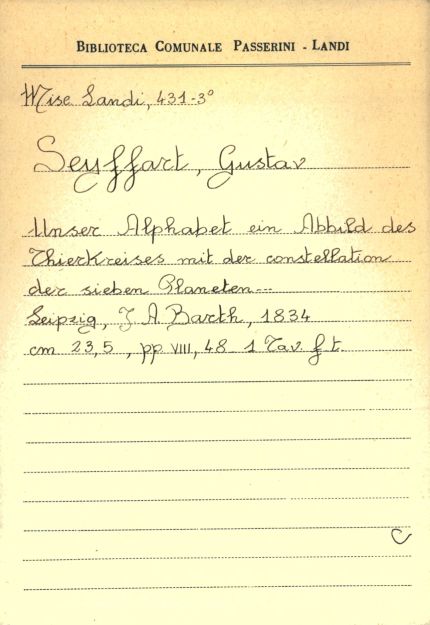 BIBLIOTECA COMUNALE PASSERINI - LANDI
Misc Landi, 431-3°
Seyffart, Gustav
Unser Alphabet ein Abbild des
Thierkreises mit der constellation
der sieben Planeten...
Leipzig, J. A. Barth, 1834
cm 23,5, pp VIII, 48 - 1 Tav. f. t.
C